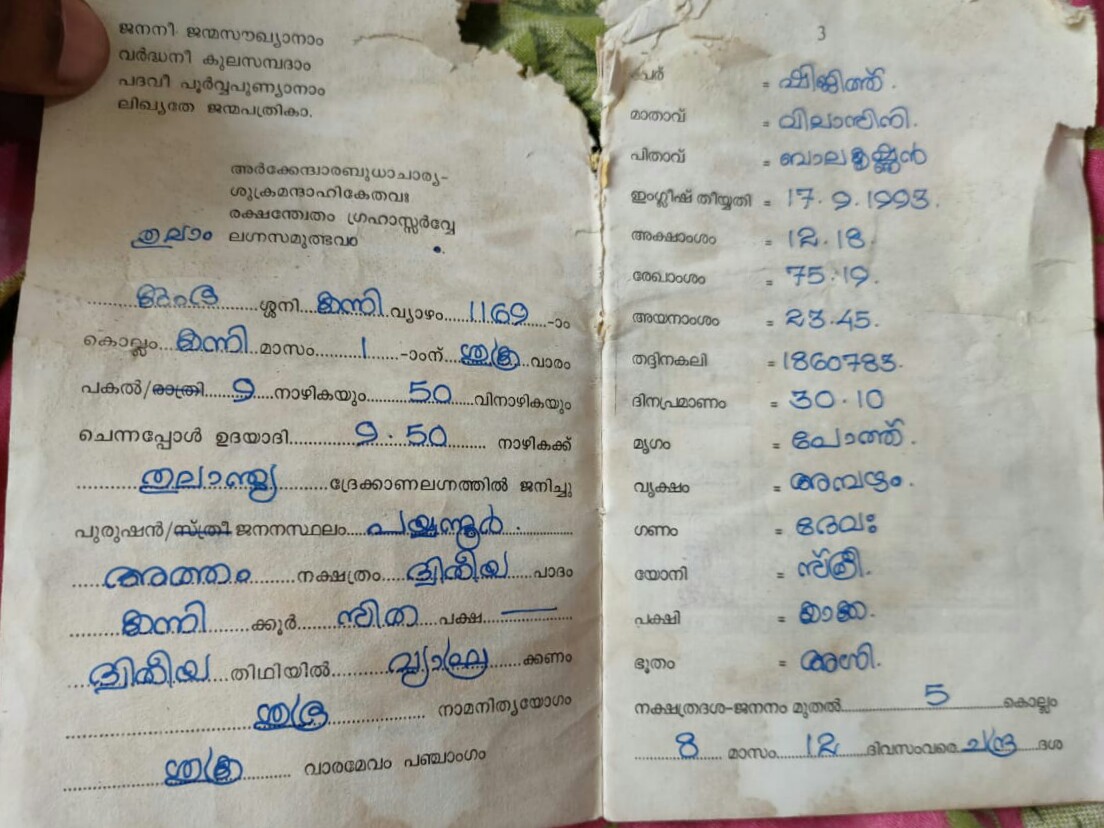 ജനനീ ജന്മസൗഖ്യാനാം
വർദ്ധനീ കുലസമ്പദാം
പദവീ പൂർവ്വപുണ്യാനാം
ലിഖ്യതേ ജന്മപത്രികാ.
അർക്കേന്ദ്വാരബുധാചാര്യ-
ശുക്രമന്ദാഹികേതവഃ
രക്ഷന്ത്വേതം ഗ്രഹാസ്സർവ്വേ
തുലാം ലഗ്നസമുത്ഭവം
കുംഭ ശ്ശനി കന്നി വ്യാഴം 1169 -ാം
കൊല്ലം കന്നി മാസം 1 -ാംന് ശുക്ര വാരം
പകൽ/രാത്രി 9 നാഴികയും 50 വിനാഴികയും
ചെന്നപ്പോൾ ഉദയാദി 9.50 നാഴികക്ക്
തുലാന്ത്യ ദ്രേക്കാണലഗ്നത്തിൽ ജനിച്ച
പുരുഷൻ/സ്ത്രീ ജനനസ്ഥലം പയ്യന്നൂർ.
അത്തം നക്ഷത്രം ദ്വിതീയ പാദം
കന്നി ക്കൂർ സിത പക്ഷ
ദ്വിതീയ തിഥിയിൽ വ്യാഘ്ര ക്കണം
നാമനിത്യയോഗം
ശുക്ര വാരമേവം പഞ്ചാംഗം
3
പേര് = ഷിജിത്ത്.
മാതാവ് = വിലാസിനി.
പിതാവ് = ബാലകൃഷ്ണൻ
ഇംഗ്ലീഷ് തീയ്യതി = 17.9.1993.
അക്ഷാംശം = 12.18.
രേഖാംശം = 75.19.
അയനാംശം = 23.45.
തദ്ദിനകലി = 1860783.
ദിനപ്രമാണം = 30.10
മൃഗം = പോത്ത്.
വൃക്ഷം = അമ്പഴം.
ഗണം = ദേവഃ
യോനി = സ്ത്രീ.
പക്ഷി = കാക്ക.
ഭൂതം = അഗ്നി.
നക്ഷത്രദശ-ജനനം മുതൽ 5 കൊല്ലം
8 മാസം 12 ദിവസംവരെ ചന്ദ്ര ദശ